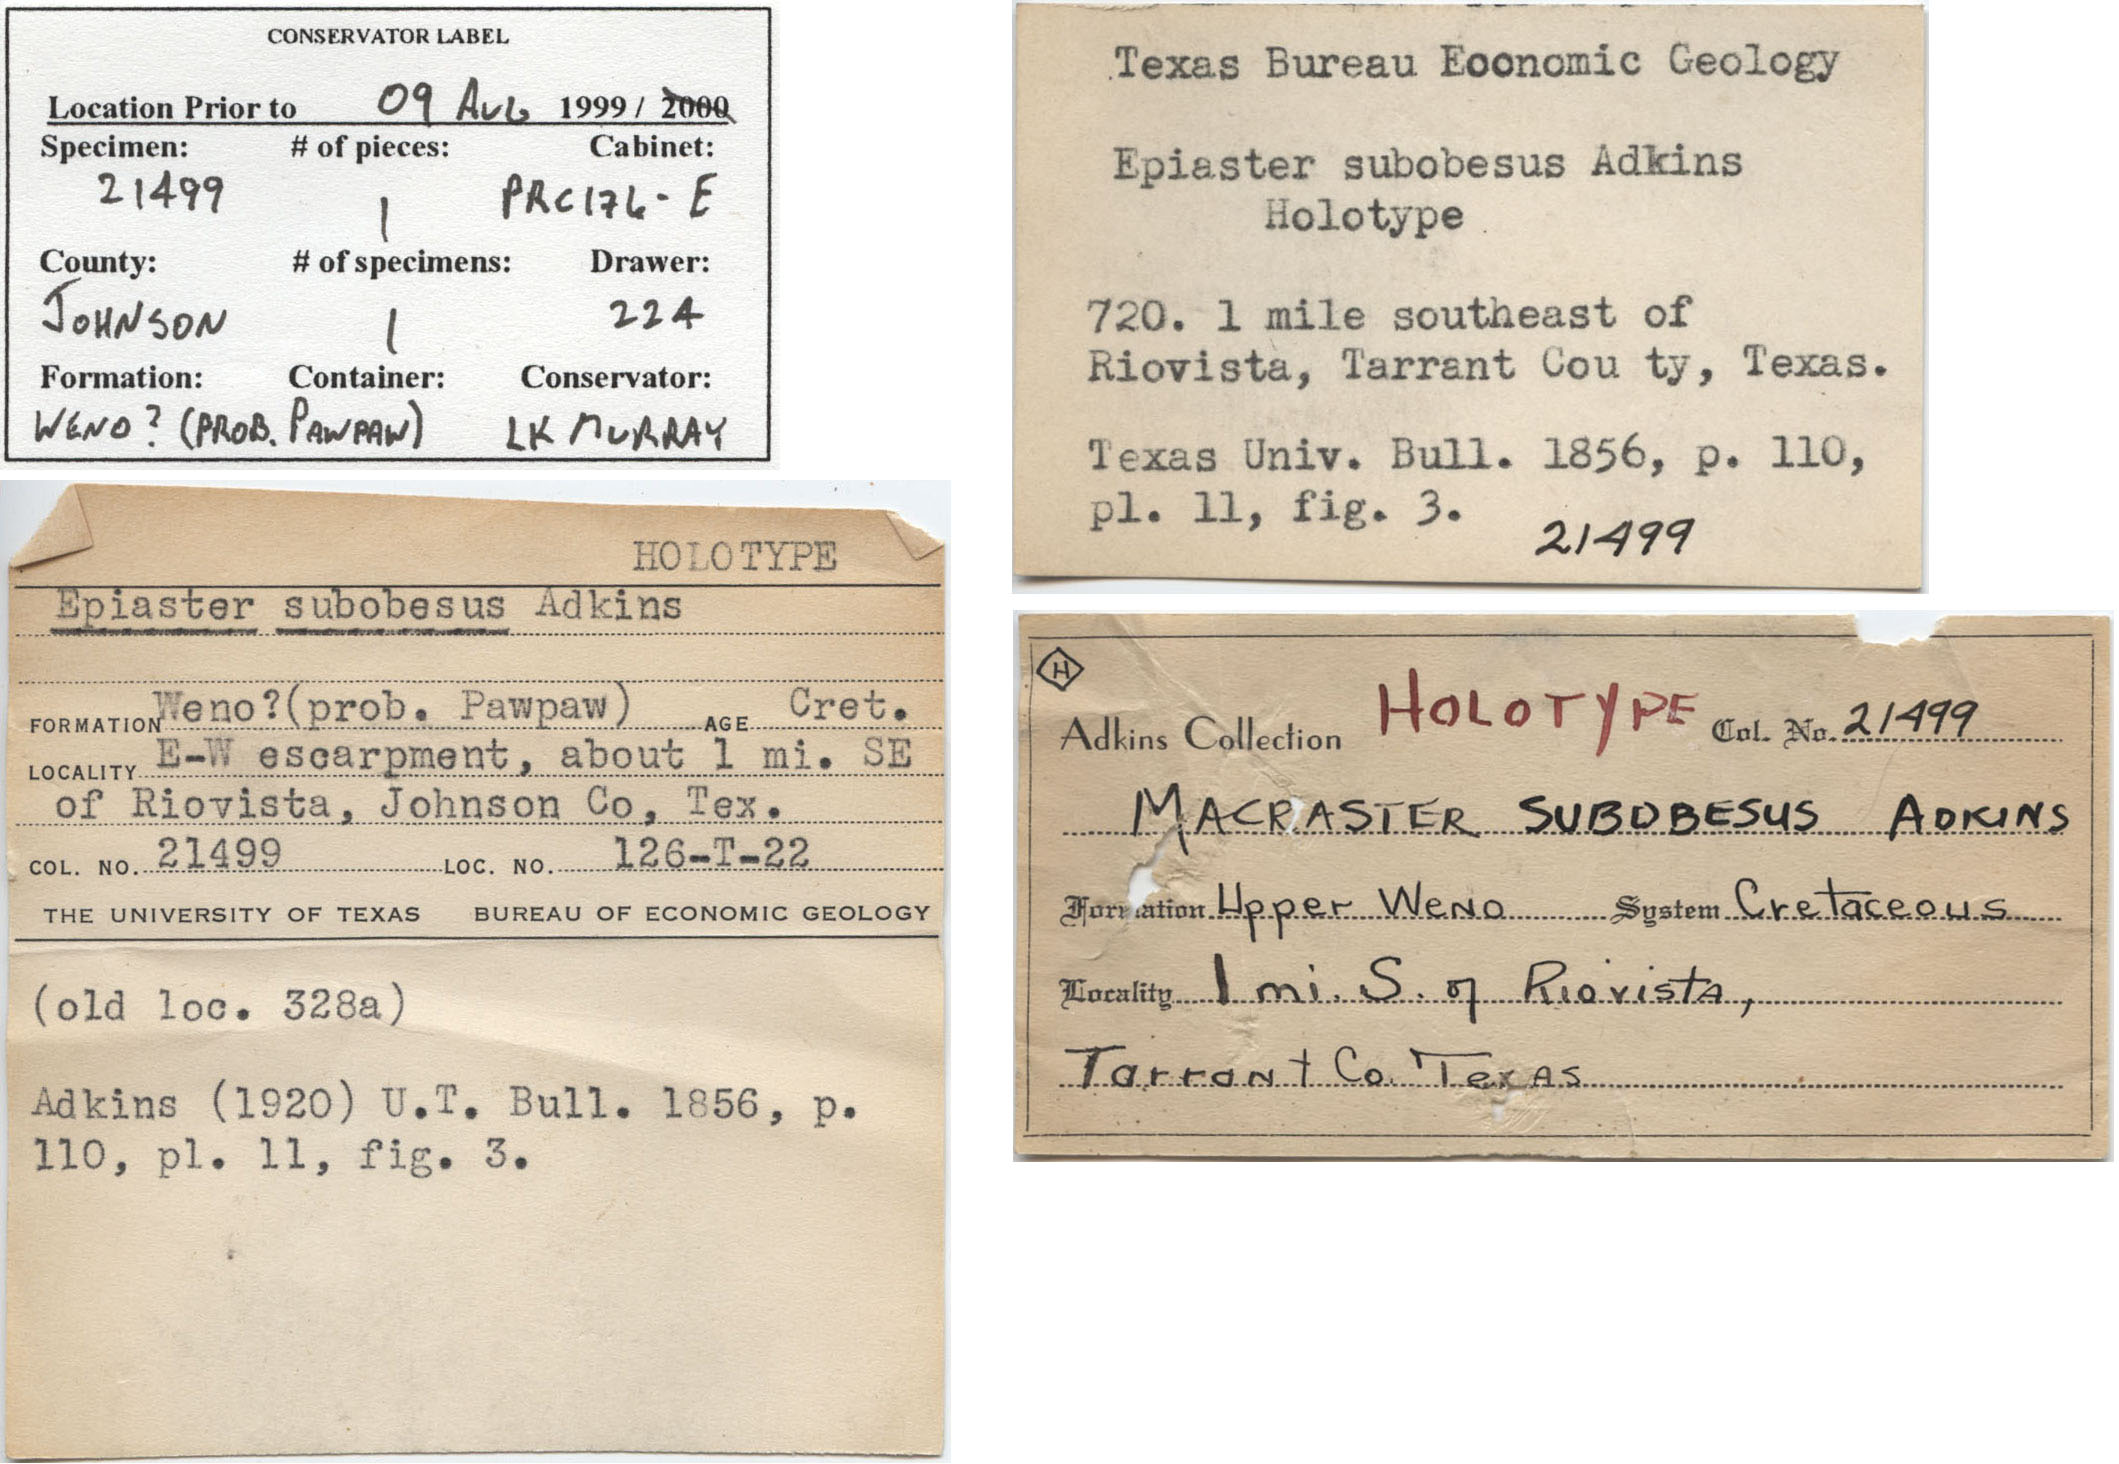 CONSERVATOR LABEL
Location Prior to 09 AUG 1999 / 2000
Specimen: # of pieces: Cabinet:
21499 1 PRC176-E
County: # of specimens: Drawer:
JOHNSON 1 224
Formation: Container: Conservator:
WENO? (PROB. PAWPAW) LK MURRAY
Texas Bureau Eoonomic Geology
Epiaster subobesus Adkins
Holotype
720. 1 mile southeast of
Riovista, Tarrant Cou ty, Texas.
Texas Univ. Bull. 1856, p. 110,
pl. 11, fig. 3.
21499
HOLOTYPE
Epiaster subobesus Adkins
FORMATION Weno?(prob. Pawpaw) AGE Cret.
LOCALITY E-W escarpment, about 1 mi. SE
of Riovista, Johnson Co, Tex.
COL. NO. 21499 LOC. NO. 126-T-22
THE UNIVERSITY OF TEXAS BUREAU OF ECONOMIC GEOLOGY
(old loc. 328a)
Adkins (1920) U.T. Bull. 1856, p.
110, pl. 11, fig. 3.
H
Adkins Collection HOLOTYPE Col. No. 21499
MACRASTER SUBOBESUS ADKINS
Formation Upper Weno System Cretaceous
Locality 1 mi. S. of Riovista,
Tarrant Co. Texas